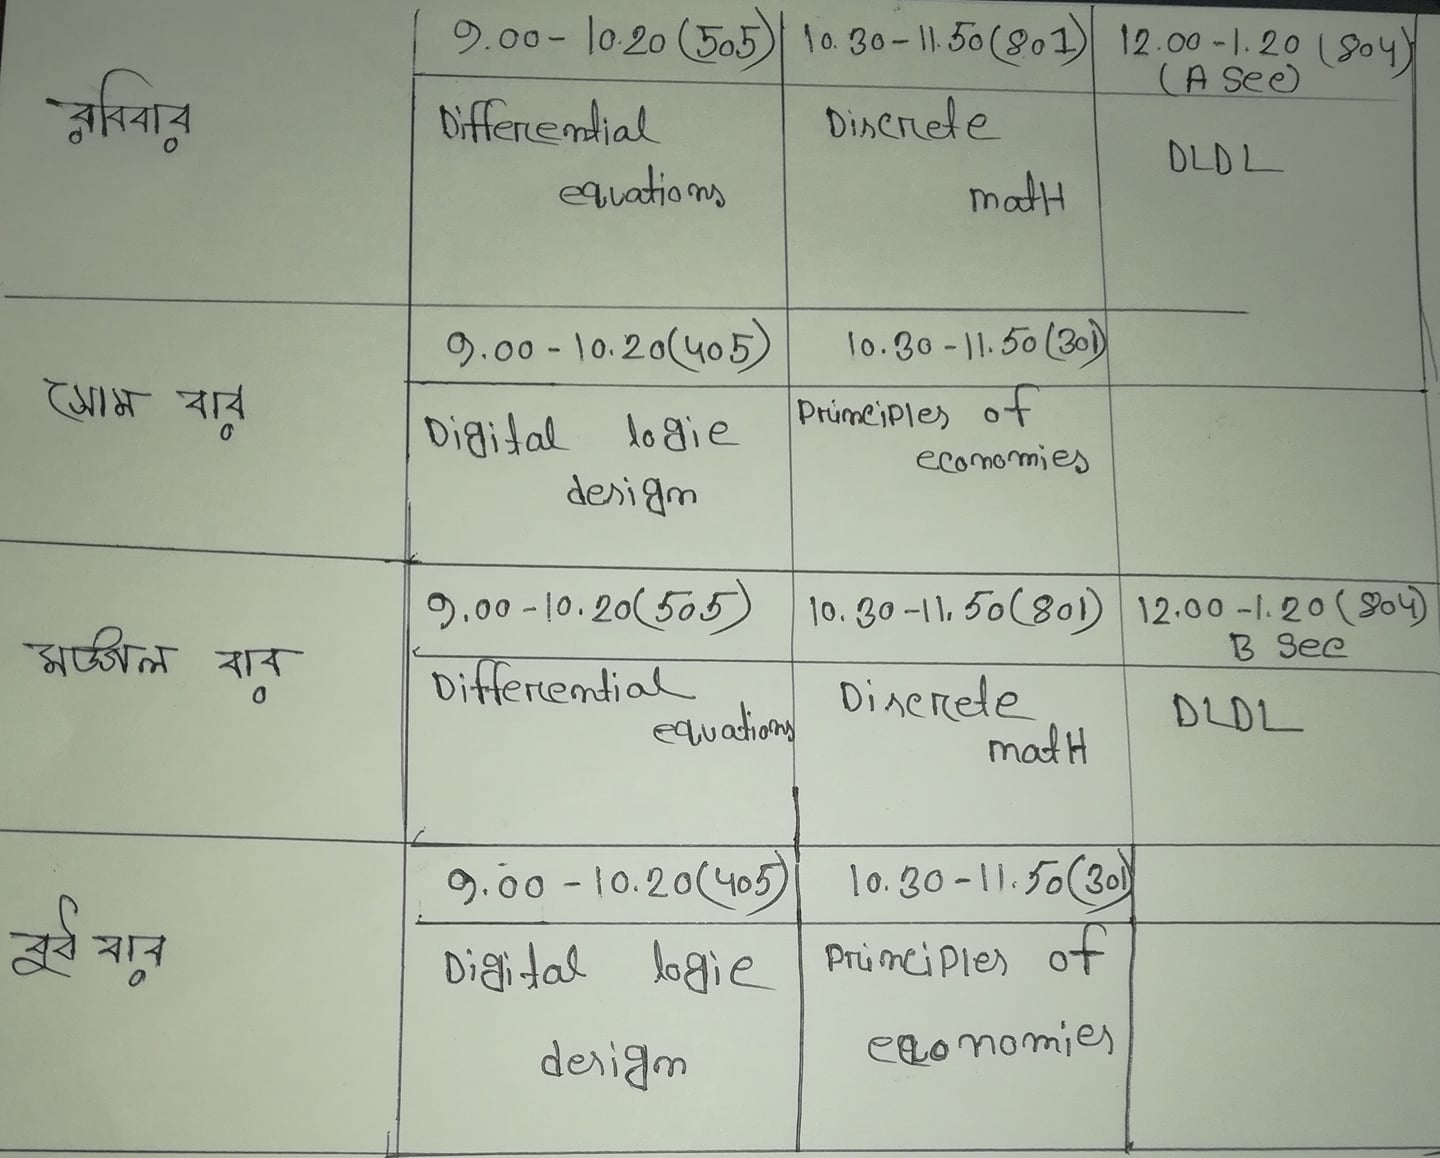 রবিবার
9.00 - 10.20 (505)
10.30 - 11.50 (801)
12.00 - 1.20 (804)
(A Sec)
Differential
equations
Discrete
matH
DLDL
সোম বার
9.00 - 10.20 (405)
10.30 - 11.50 (301)
Digital logic
design
Principles of
economics
মঙ্গল বার
9.00 - 10.20 (505)
10.30 - 11.50 (801)
12.00 - 1.20 (804)
B Sec
Differential
equations
Discrete
matH
DLDL
9.00 - 10.20 (405)
10.30 - 11.50 (301)
বার
Digital logic
design
Principles of
economics